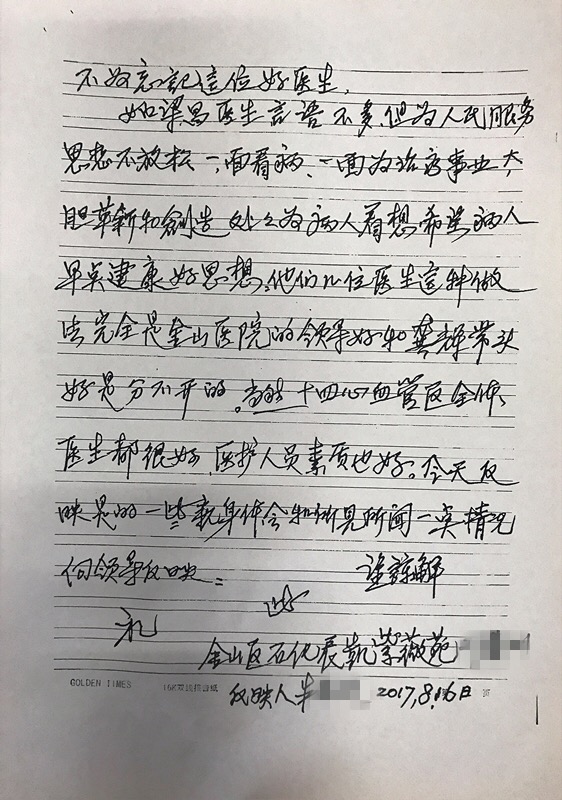 不好忘記這位好医生,
如梁昌医生言语不多,但为人民服务
思想不放松,一面看病,一面为治病事业大
胆革新和創造处々为病人着想希望病人
早点建康好思想,他们几位医生這种做
法完全是金山医院的领导好和龚辉带头
好是分不开的。当然十四心血管区全体
医生都很好,医护人员素质也好。今天反
映是的一些亲身体会和所见所闻一点情况
向领导反映: 请諒解
此
礼
金山区石化晨凯紫薇苑
GOLDEN TIMES 16K双线信纸
反映人 2017,8,16日